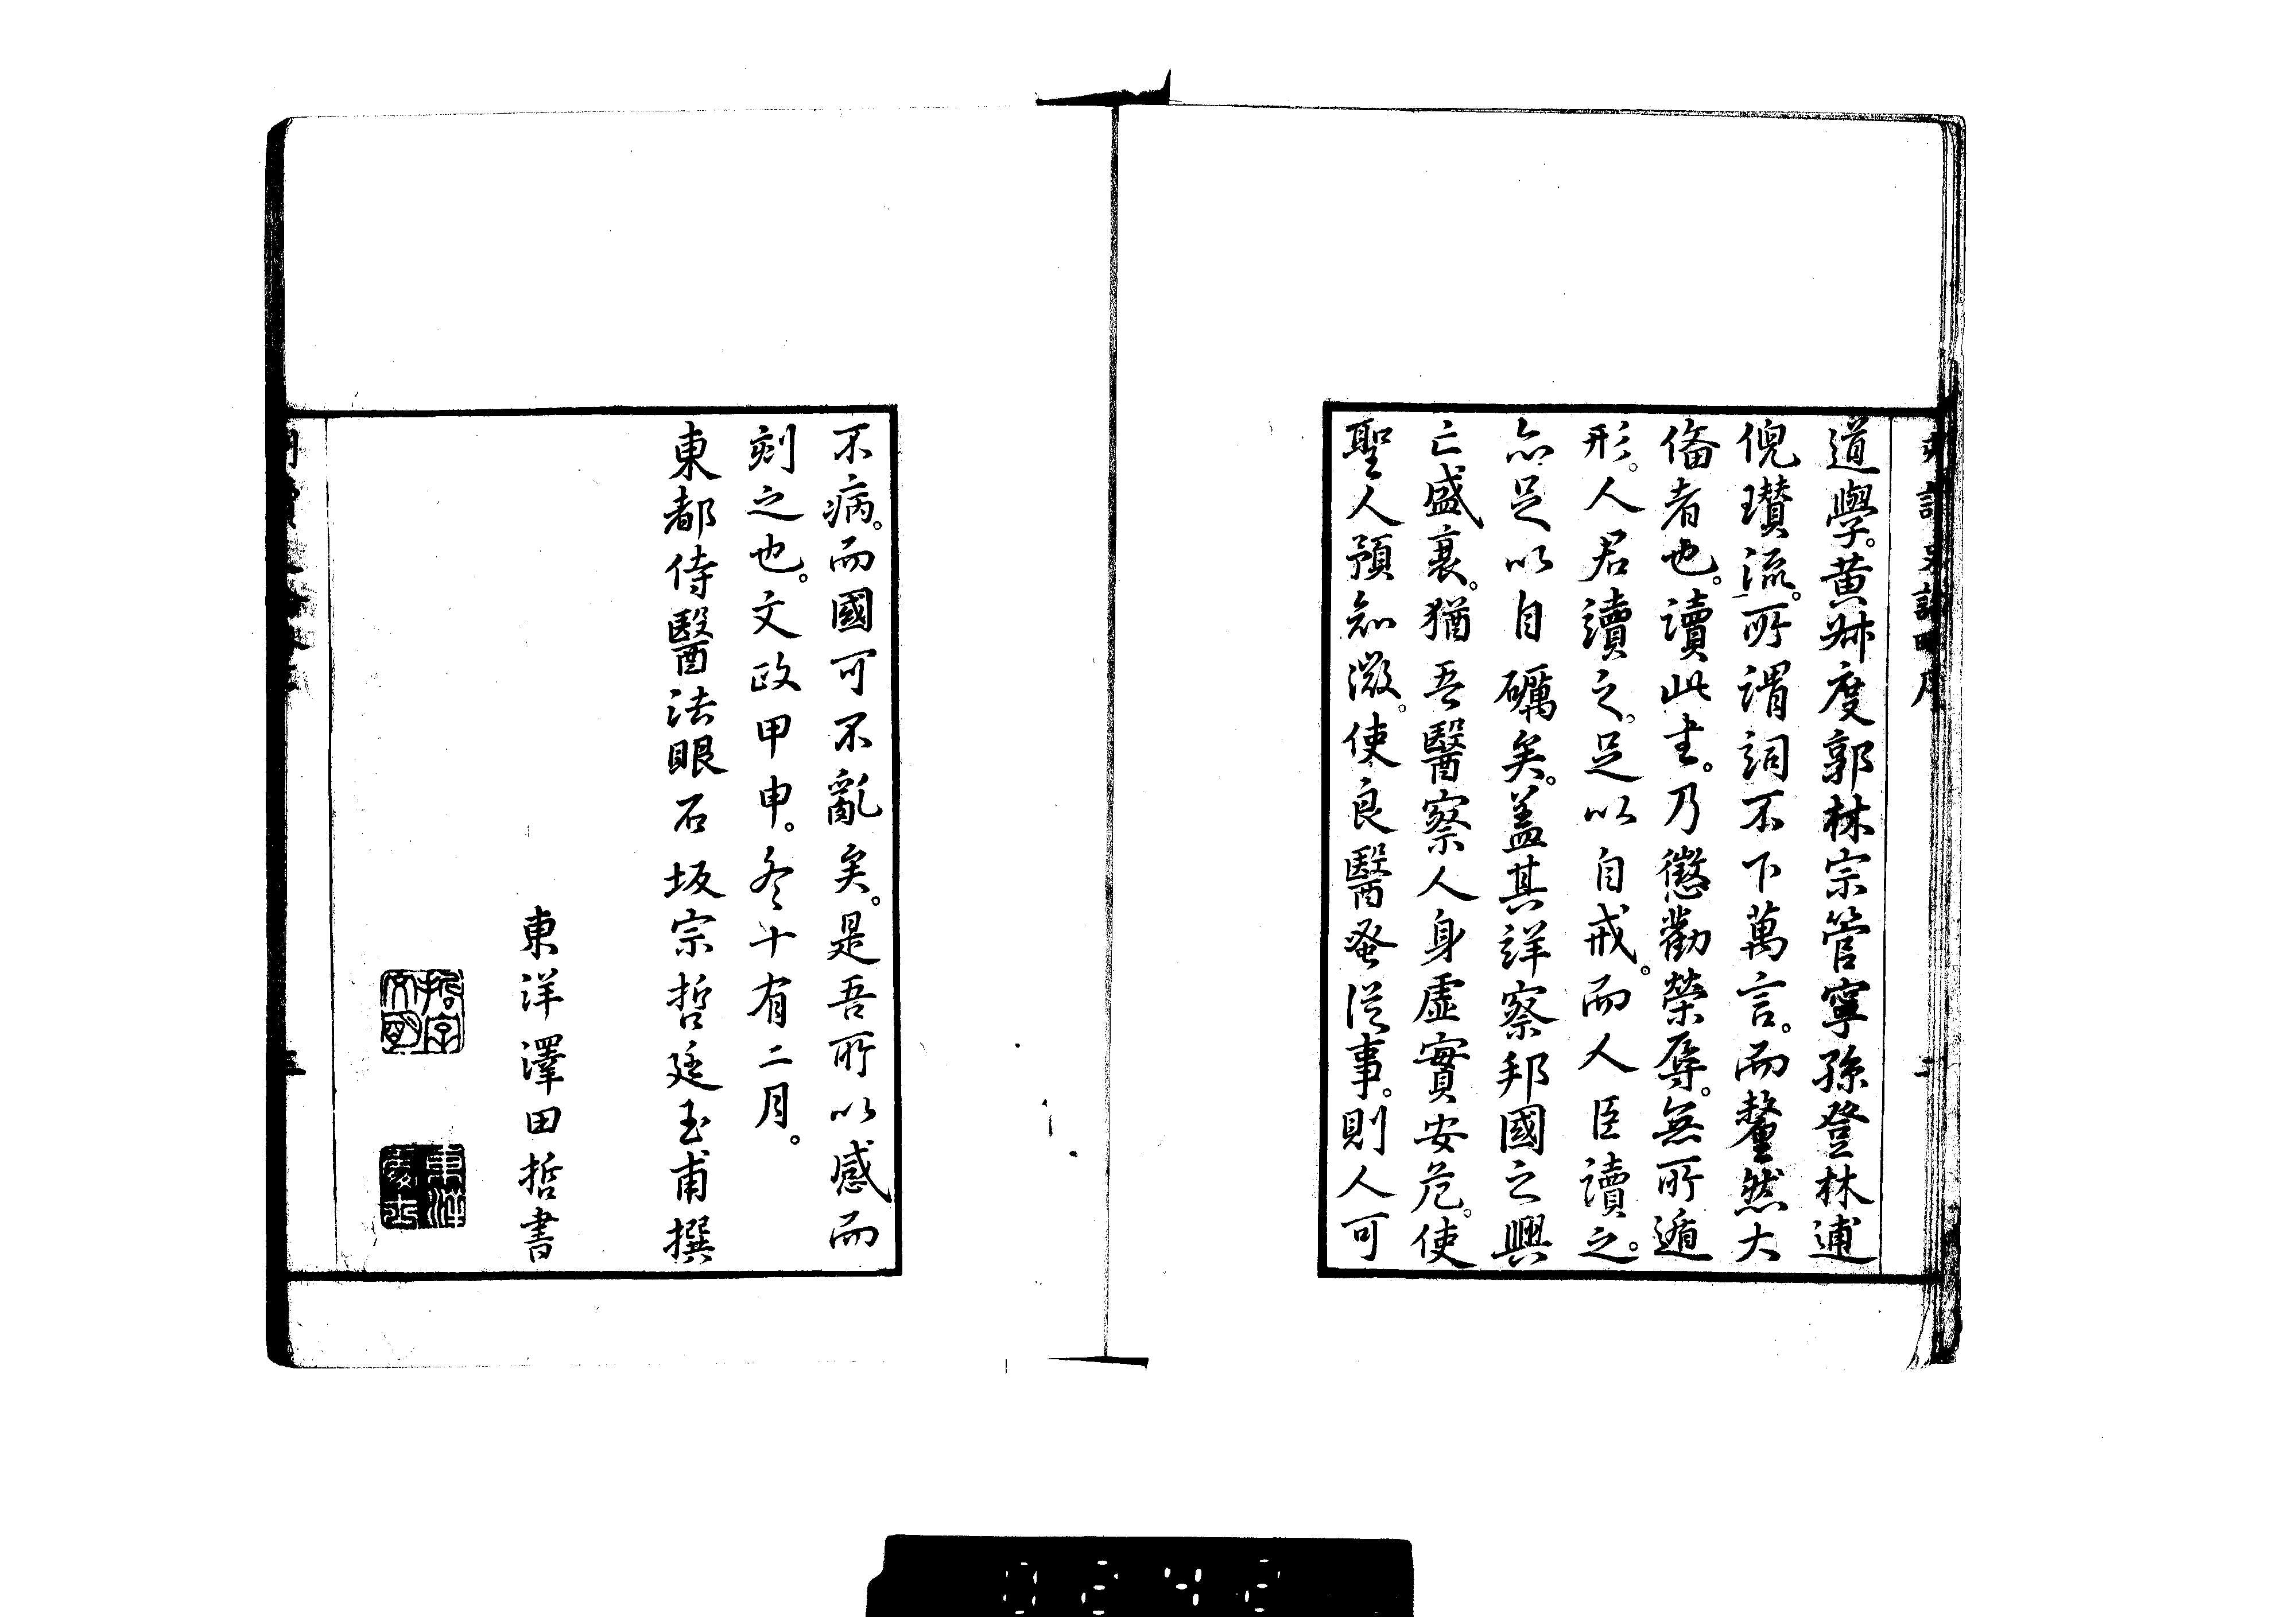 道學。黄叔度郭林宗管寧孫登林逋
倪瓚流。所謂詞不下萬言。而釐然大
俻者也。讀此書。乃懲勸榮辱。無所遁
形。人君讀之。足以自戒。而人臣讀之。
亦足以自礪矣。盖其詳察邦國之興
亡盛衰。猶吾醫察人身虛實安危。使
聖人預知微。使良醫蚤從事。則人可
不病。而國可不亂矣。是吾所以感而
刻之也。文政甲申。冬十有二月。
東都侍醫法眼石坂宗哲廷玉甫撰
東洋澤田哲書
0242